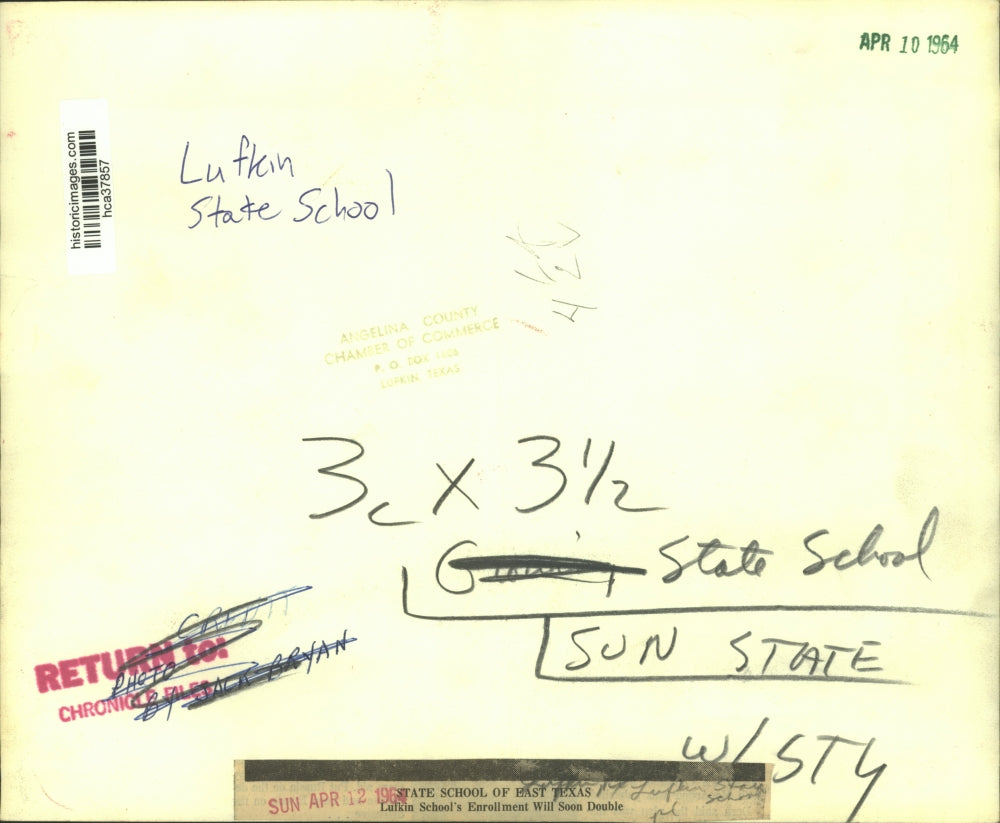 APR 10 1964
historicimages.com
hca37857
Lufkin
State School
ANGELINA COUNTY
CHAMBER OF COMMERCE
P. O. BOX
LUFKIN TEXAS
3c X 3 1/2
State School
SUN STATE
CREDIT
PHOTO
BY JACK BRYAN
RETURN to:
CHRONICLE FILES
W/STY
SUN APR 12 1964
STATE SCHOOL OF EAST TEXAS
Lufkin School's Enrollment Will Soon Double
Lufkin State
School